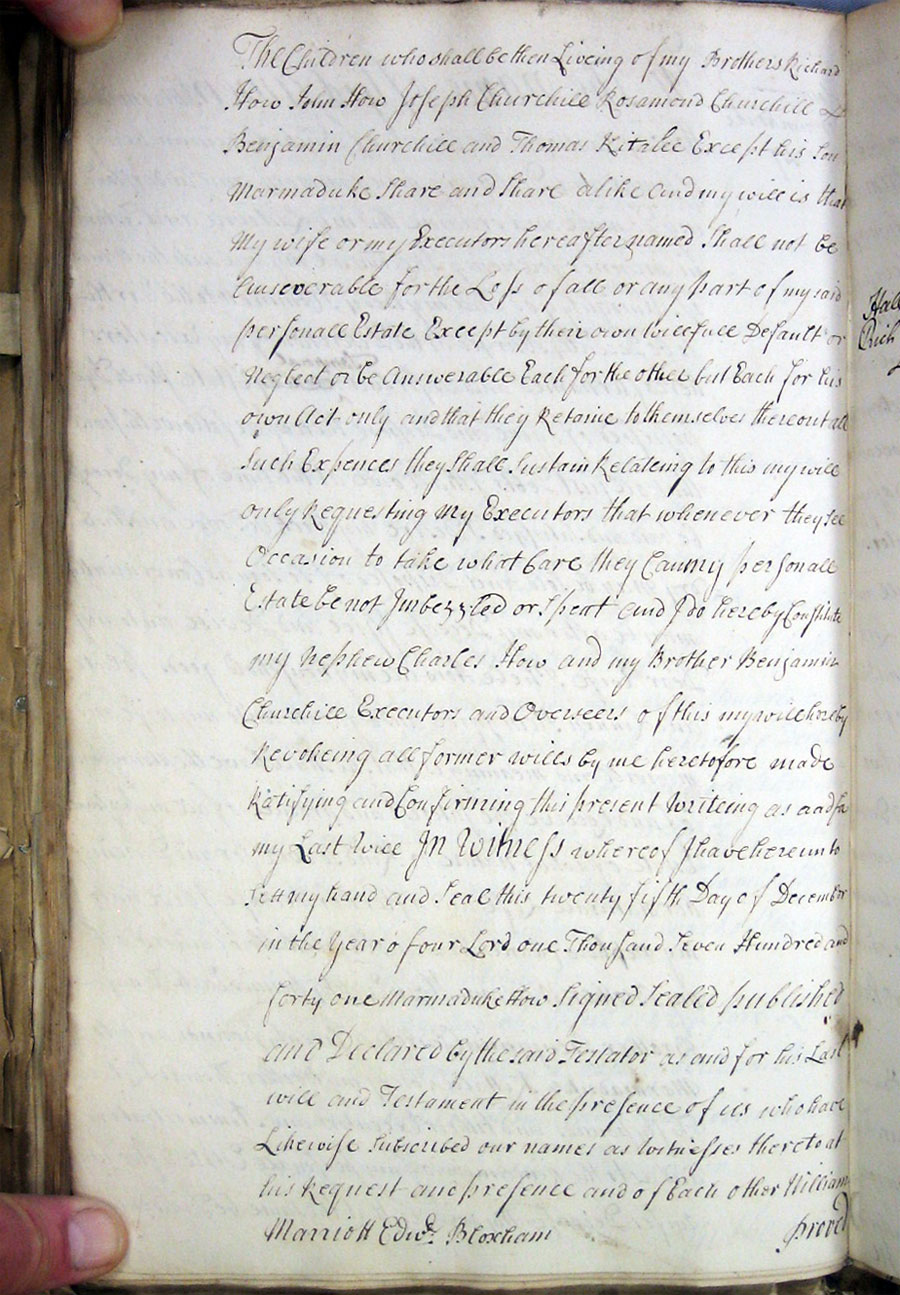 The Children who shall be then Liveing of my Brothers Richard
How John How Joseph Churchill Rosamond Churchill &
Benjamin Churchill and Thomas Kitalee Except his Son
Marmaduke Share and Share alike And my will is that
My wife or my Executors hereafter named Shall not be
Answerable for the Loss of all or any part of my said
personall Estate Except by their own willfull Default or
Neglect or be Answerable Each for the other but Each for his
own Act only and that they Retaine to themselves thereout all
such Expences they Shall Sustain Relateing to this my will
only Requesting My Executors that whenever they see
Occasion to take what Care they Can my personall
Estate be not Imbezzled or Spent and I do hereby Constitute
my Nephew Charles How and my Brother Benjamin
Churchill Executors and Overseers of this my will hereby
Revokeing all former wills by me heretofore made
Ratifying and Confirming this present Writeing as and for
my Last Will In Witness whereof I have hereunto
sett my hand and Seal this twenty fifth Day of December
in the Year of our Lord one Thousand Seven Hundred and
forty one Marmaduke How Signed Sealed published
and Declared by the said Testator as and for his Last
will and Testament in the presence of us who have
Likewise Subscribed our names as Witnesses thereto at
his Request and presence and of Each other William
Marriott Edwd. Bloxham
proved
Hall
Rich